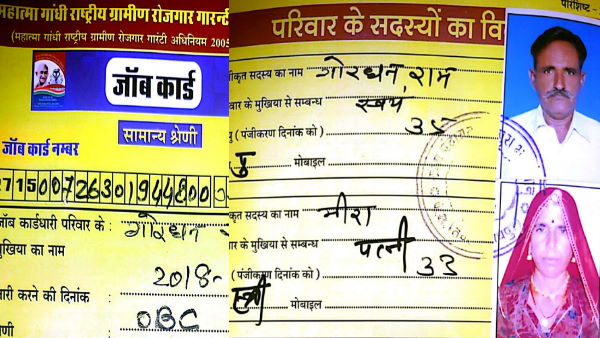 महात्मा गांधी राष्ट्रीय ग्रामीण रोजगार गारन्टी
(महात्मा गांधी राष्ट्रीय ग्रामीण रोजगार गारंटी अधिनियम 2005
जॉब कार्ड
सामान्य श्रेणी
जॉब कार्ड नम्बर
जॉब कार्डधारी परिवार के : गोरधन
मुखिया का नाम
2018-
जारी करने की दिनांक
श्रेणी OBC
परिशिष्ट -
परिवार के सदस्यों का वि
कृत सदस्य का नाम गोरधन राम
वार के मुखिया से सम्बन्ध स्वयं
(पंजीकरण दिनांक को) 35
पु मोबाइल
कृत सदस्य का नाम मीरा
ार के मुखिया से सम्बन्ध पत्नी
(पंजीकरण दिनांक को) 33
स्त्री मोबाइल